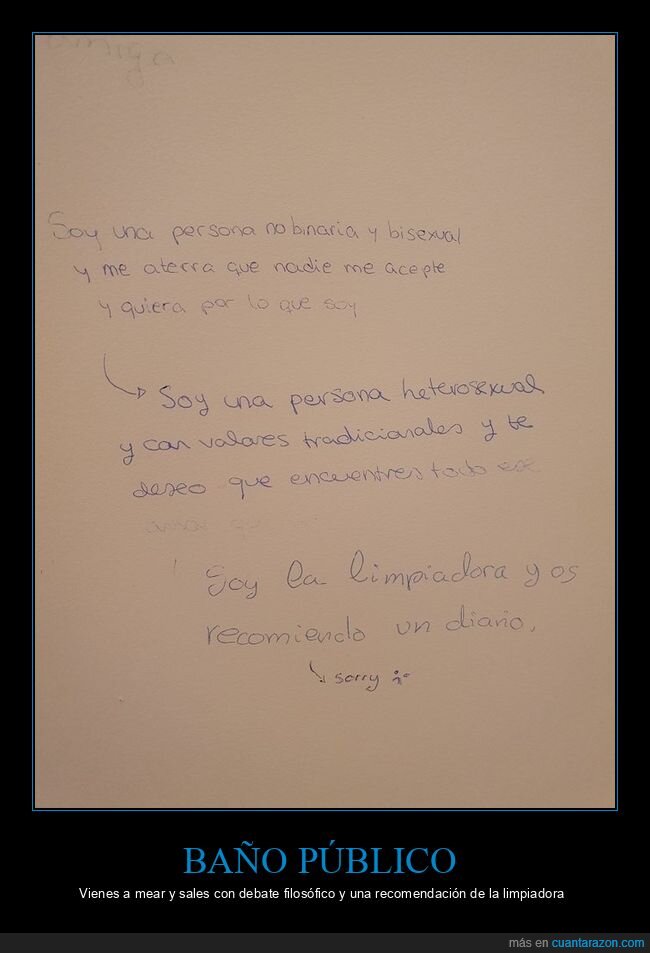 amiga
Soy una persona no binaria y bisexual
y me aterra que nadie me acepte
y quiera por lo que soy
Soy una persona heterosexual
y con valores tradicionales y te
deseo que encuentres todo ese
amor
Soy la limpiadora y os
recomiendo un diario.
sorry
BAÑO PÚBLICO
Vienes a mear y sales con debate filosófico y una recomendación de la limpiadora
más en cuantarazon.com